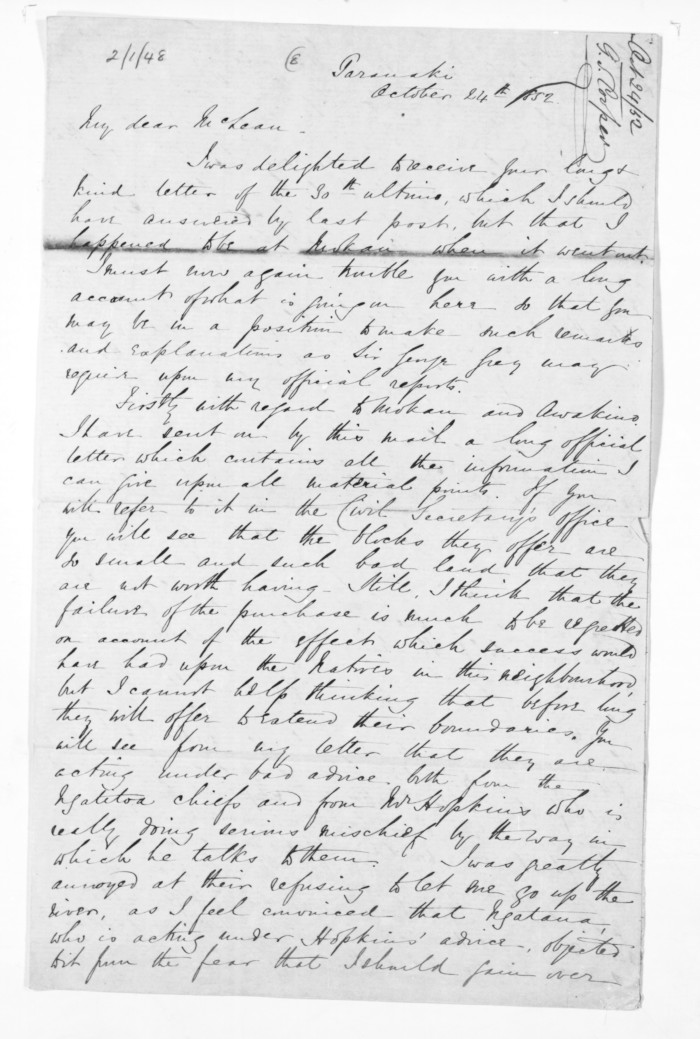 2/1/48
Taranaki
October 24th 1852
Oct 24/52
G.S. Cooper
My dear McLean.
I was delighted to receive your long &
kind letter of the 30th ultimo, which I should
have answered by last post, but that I
happened to be at Mokau when it went out.
I must now again trouble you with a long
account of what is going on here so that you
may be in a position to make such remarks
and explanations as Sir George Grey may
require upon my official reports.
Firstly with regard to Mokau and Awakino.
I have sent on by this mail a long official
letter which contains all the information I
can give upon all material points. If you
will refer to it in the Civil Secretary's office
you will see that the blocks they offer are
so small and such bad land that they
are not worth having. Still, I think that the
failure of the purchase is much to be regretted
on account of the effect which success would
have had upon the Natives in this neighbourhood,
but I cannot help thinking that before long
they will offer to extend their boundaries. You
will see from my letter that they are
acting under bad advice both from the
Ngatitoa chiefs and from Mr Hopkins who is
really doing serious mischief by the way in
which he talks to them. I was greatly
annoyed at their refusing to let me go up the
river, as I feel convinced that Ngatana,
who is acting under Hopkins' advice, objected
to it from the fear that I should gain over